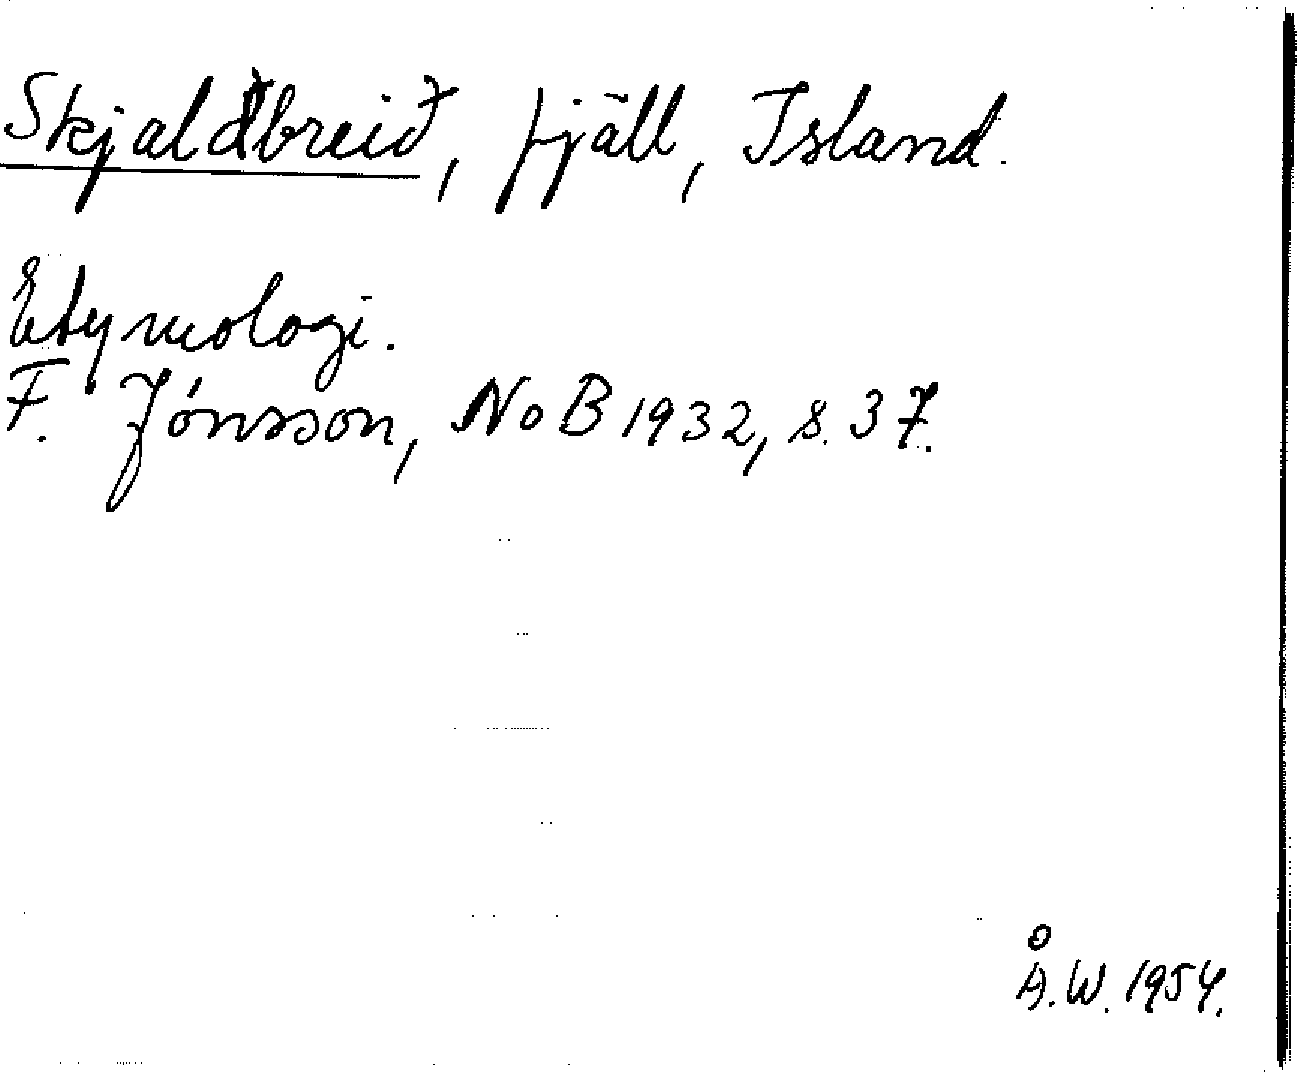 Skjaldbreið, fjäll, Island.
Etymologi.
F. Jónsson, NoB 1932, s. 37.
Å.W. 1954.